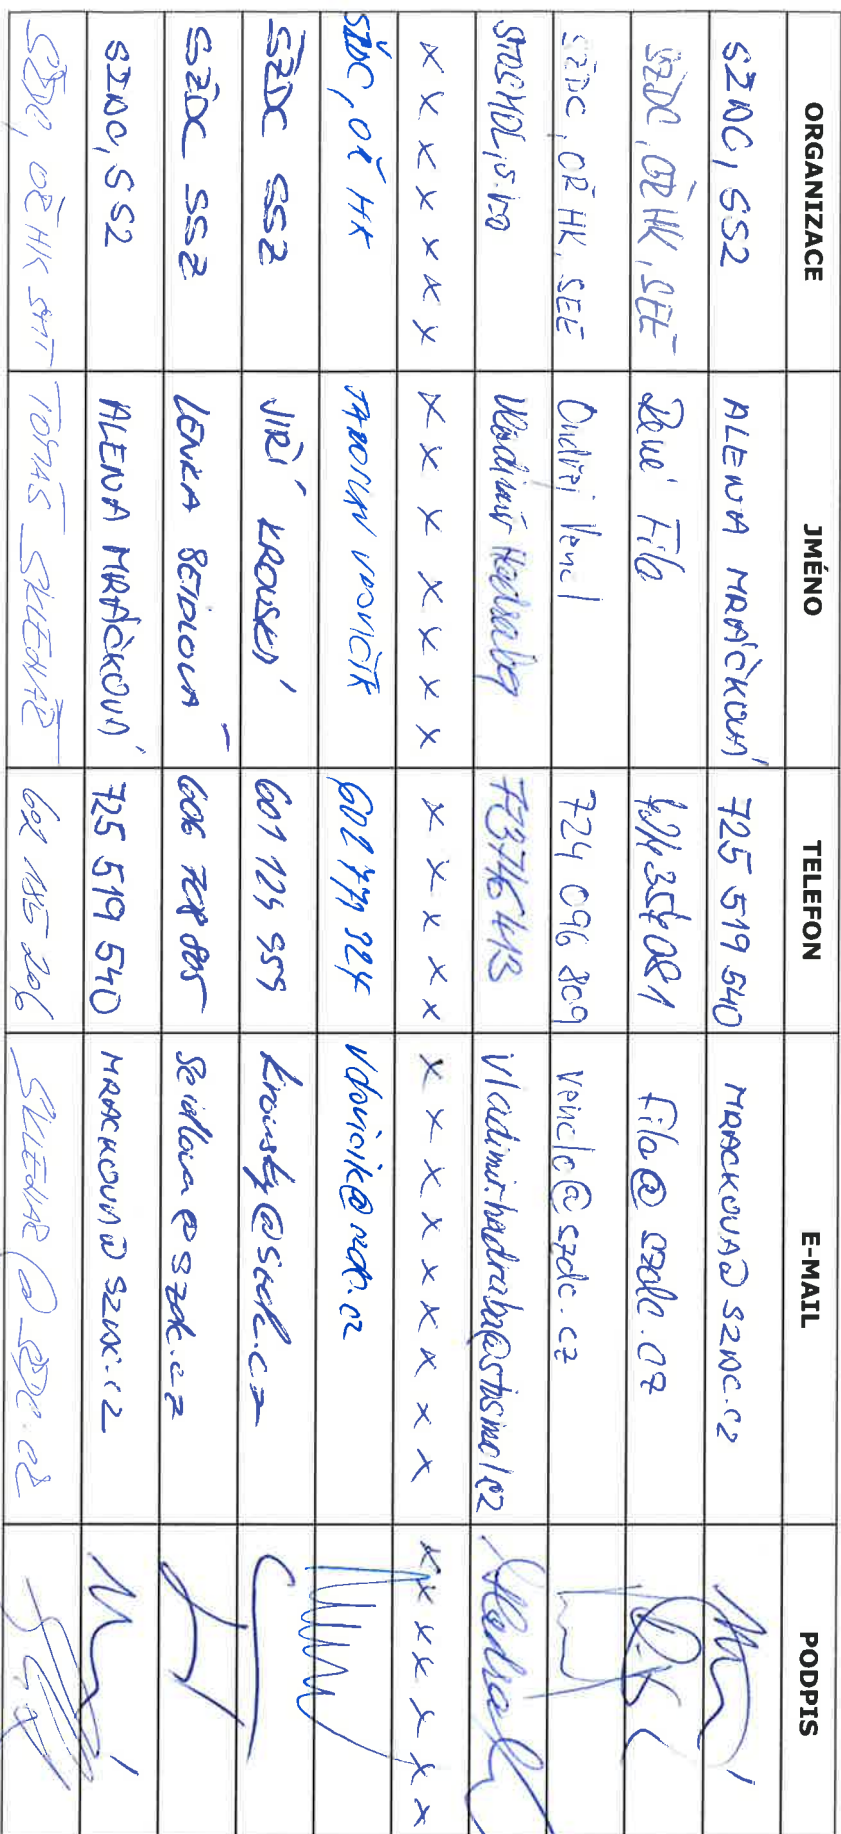 ORGANIZACE JMÉNO TELEFON E-MAIL PODPIS
SŽDC, SS2 ALENA MRÁČKOVÁ 725 519 540 MRACKOVA@SZDC.CZ
SŽDC, OŘ HK, SEE René Fila Fila@szdc.cz
SŽDC, OŘ HK, SEE Ondřej Vencl 724 096 809 Venclo@szdc.cz
STOSMOL, s.r.o Vladimír Hadraba 737 716 413 vladimir.hadraba@stosmol.cz
x x x x x x x x x x x x x x x x x x x x x x x x x x x x x x x x x
SŽDC, OŘ HK 602 774 324 Vdovicik@szdc.cz
SŽDC SSZ JIŘÍ KROUSKÝ 601 124 959 krousky@szdc.cz
SŽDC SSZ LENKA SEIDLOVÁ Seidlova@szdc.cz
SŽDC, SS2 ALENA MRÁČKOVÁ 725 519 540 MRACKOVA@SZDC.CZ
SŽDC, OŘ HK SMT TOMÁŠ SKLENÁŘ 602 185 206 SKLENAR@SZDC.CZ